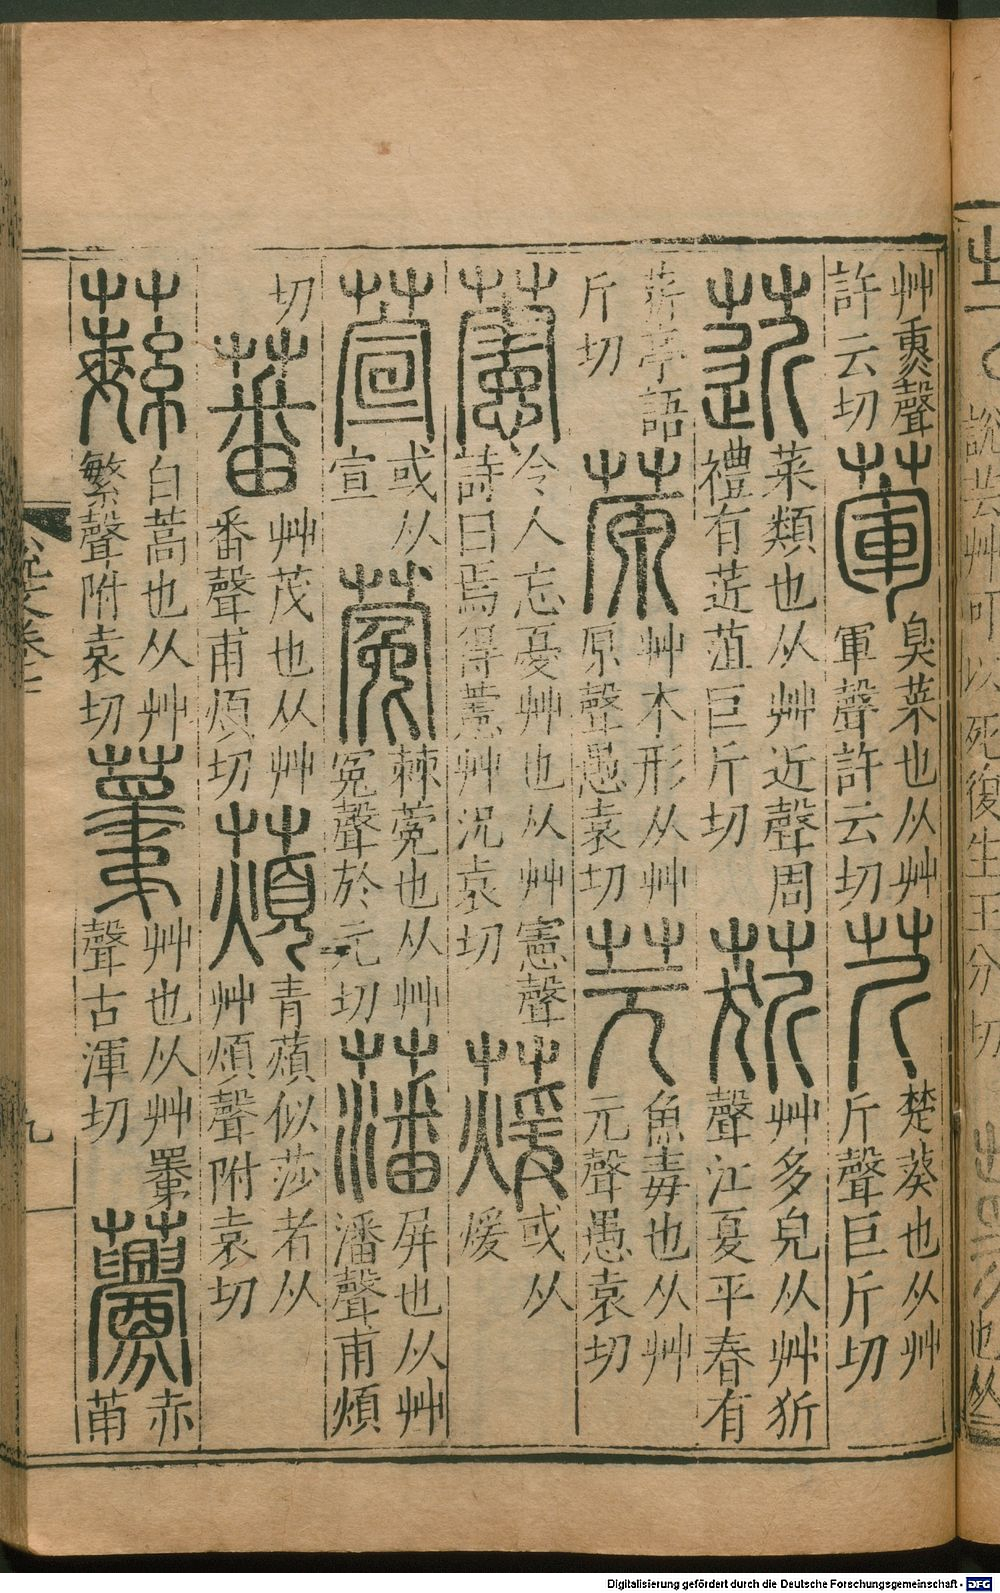 說芸艸可以死復生王分切
也从
艸𤋱聲
許云切
葷
臭菜也从艸
軍聲許云切
芹
楚葵也从艸
斤聲巨斤切
菦
菜類也从艸近聲周
禮有菦菹巨斤切
𦸅
艸多皃从艸㹞
聲江夏平春有
𦸅亭語
斤切
䒳
艸木形从艸
原聲愚袁切
芫
魚毒也从艸
元聲愚袁切
藼
令人忘憂艸也从艸憲聲
詩曰焉得藼艸況袁切
蕿
或从
煖
萱
或从
宣
蒬
棘蒬也从艸
冤聲於元切
藩
屏也从艸
潘聲甫煩
切
蕃
艸茂也从艸
番聲甫煩切
薠
青薠似莎者从
艸煩聲附袁切
蘩
白蒿也从艸
繁聲附袁切
艸也从艸𦋅
聲古渾切
虋
赤
苗
說文卷
九
Digitalisierung gefördert durch die Deutsche Forschungsgemeinschaft - DFG